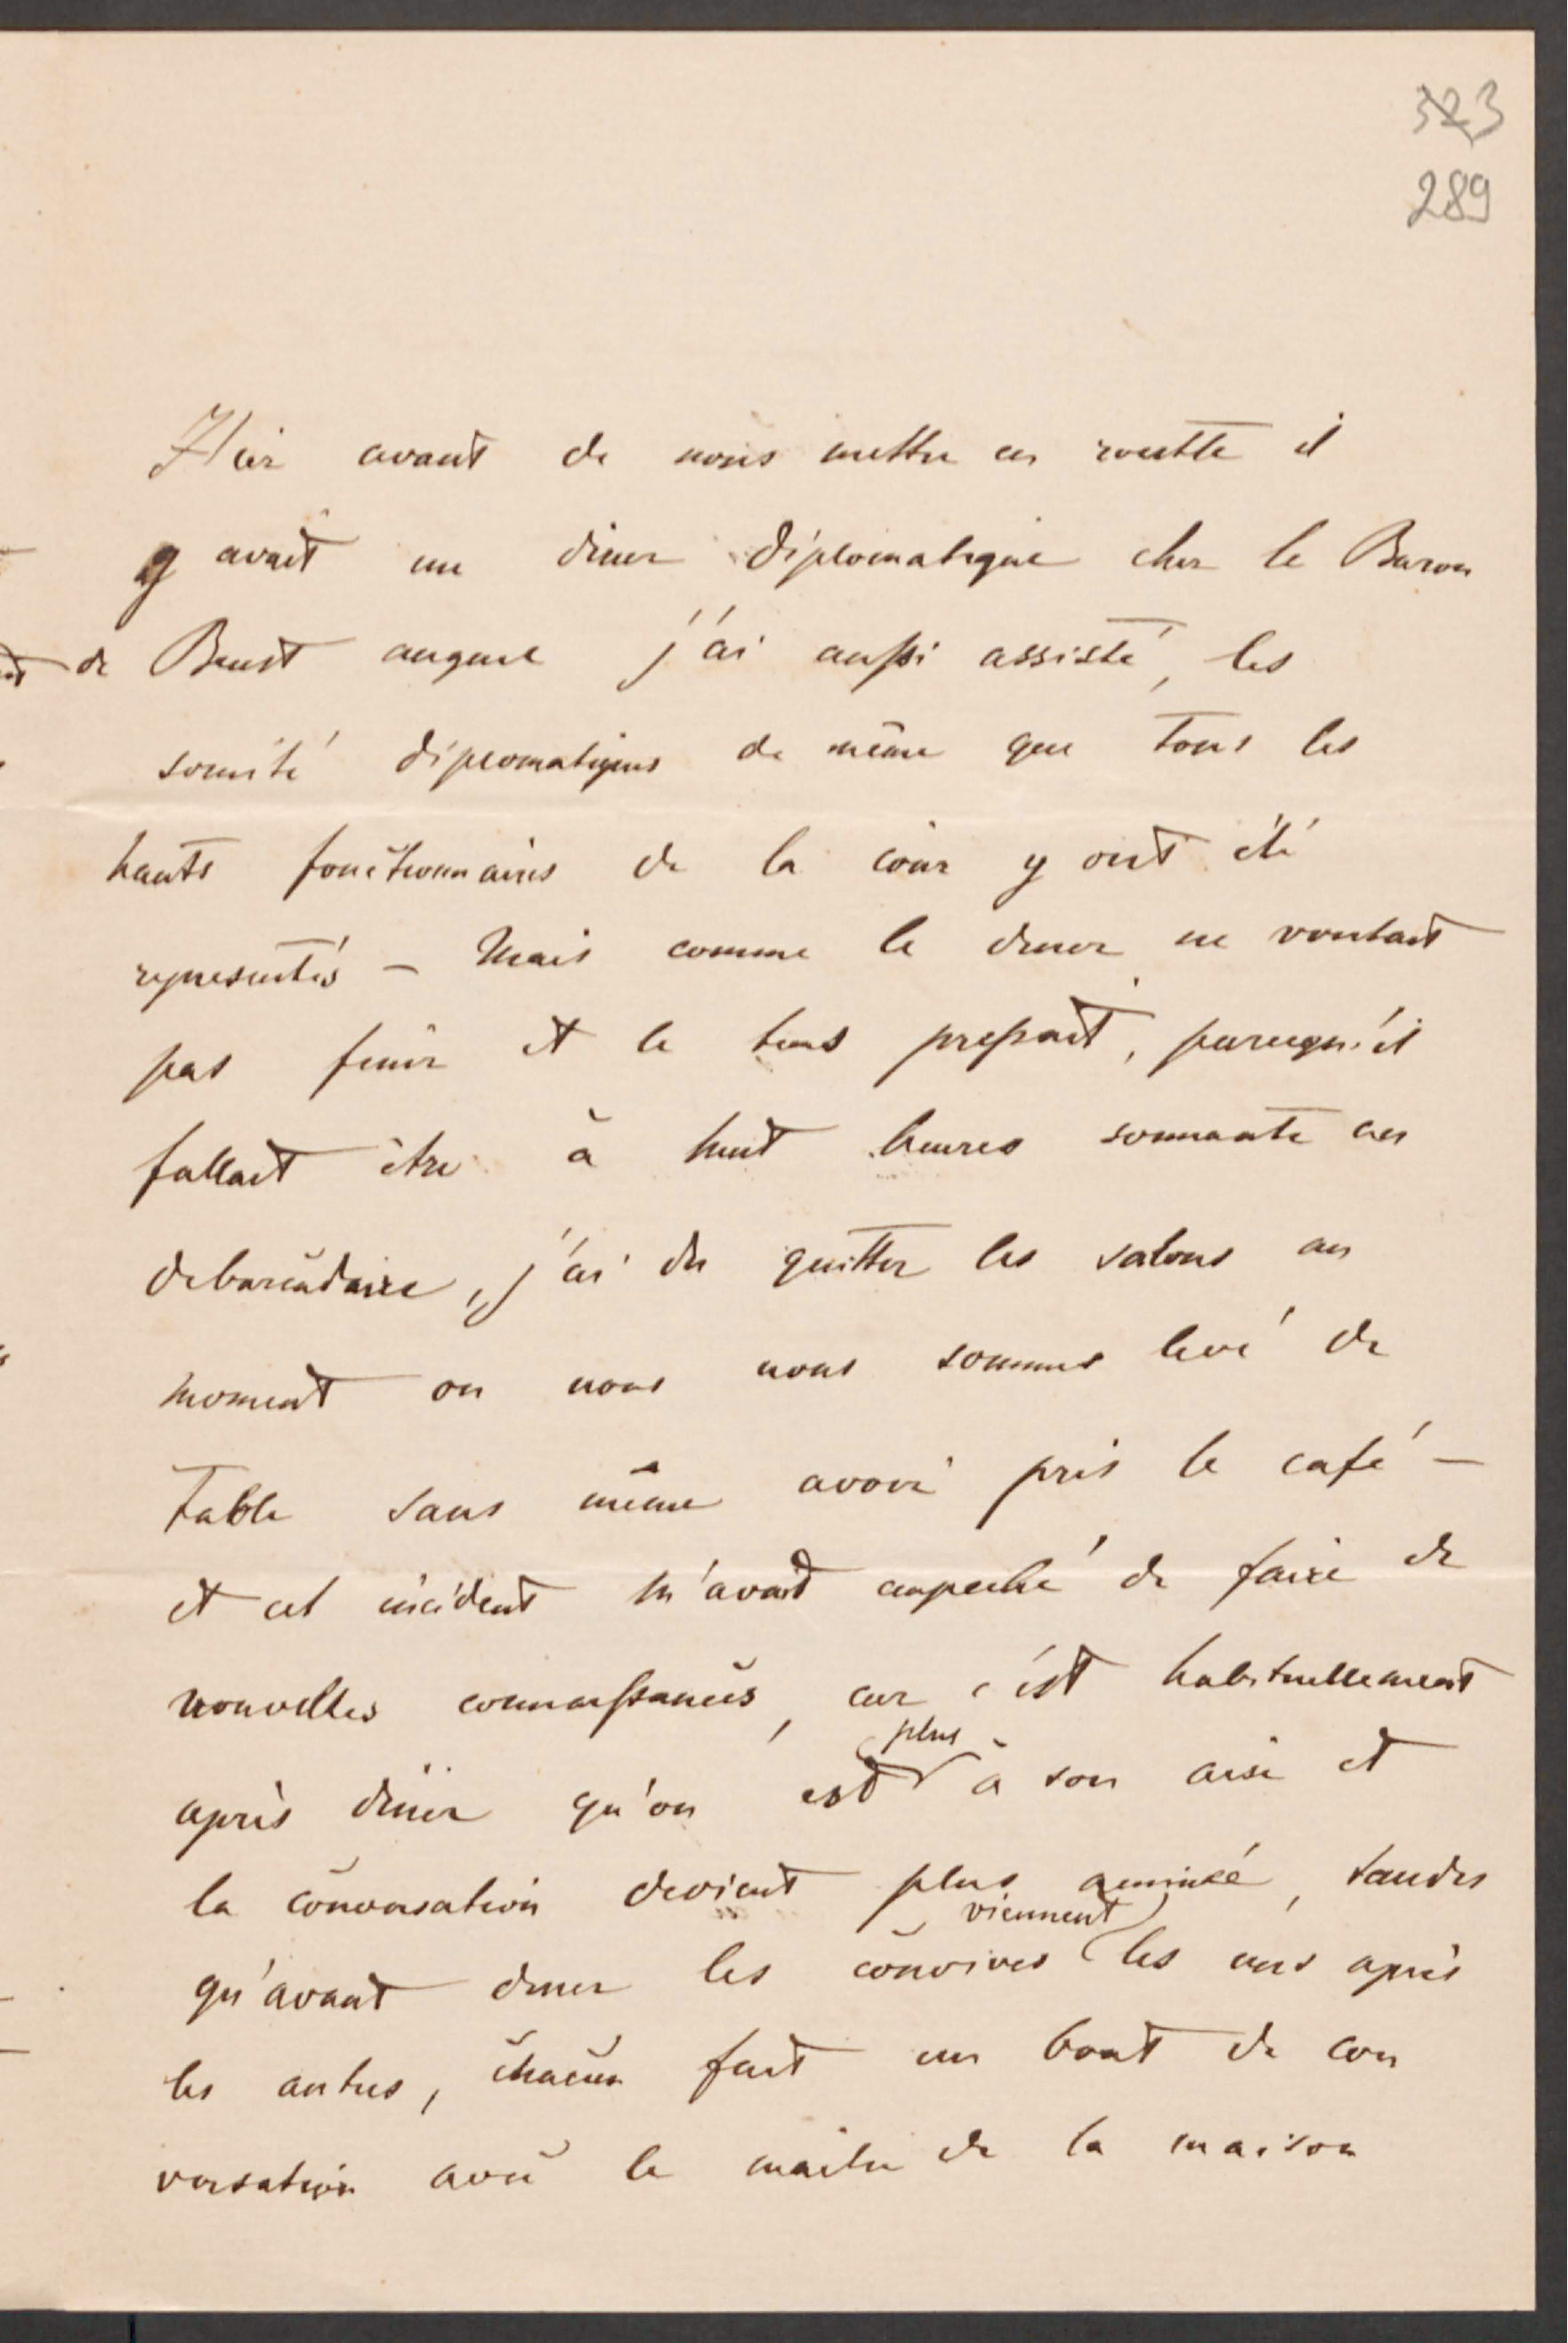 323
289
Hier avant de nous mettre en routte il
y avait un diner diplomatique chez le Baron
de Beust auquel j'ai aussi assisté, les
somité diplomatiques de même que tous les
hauts fonctionnaires de la cour y ont été
representés – Mais comme le diner ne voulait
pas finir et le tems pressait, parcequ'il
fallait être à huit heures sonnante au
debarcadaire, j'ai du quitter les salons au
moment ou nous nous sommes levé de
table sans même avoir pris le café –
et cet incident m'avait empeché de faire de
nouvelles connaissances, car c'est habituellement
après diner qu'on est plus à son aise et
la conversation devient plus animée, tandis
qu'avant diner les convives viennent les uns après
les autres, chacun fait un bout de con
versation avec le maitre de la maison